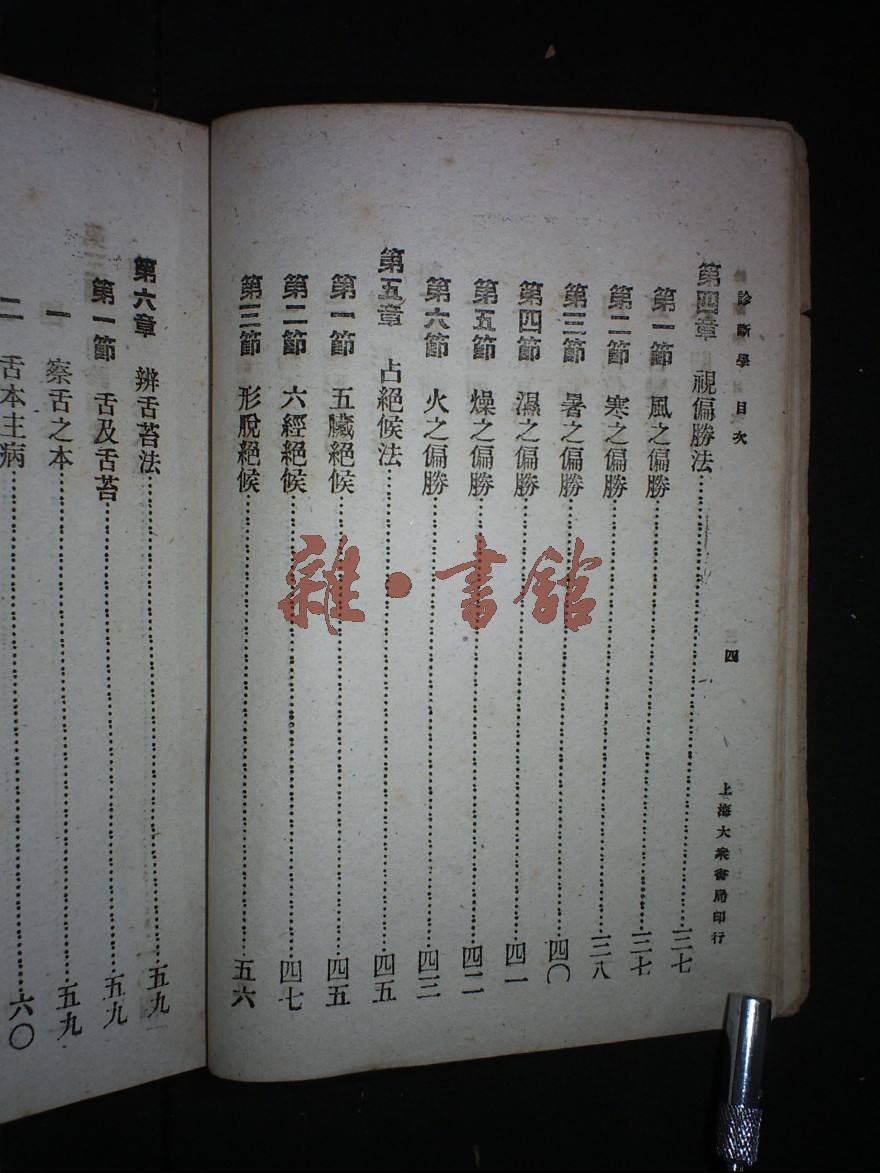 診斷學 目次 四 上海大衆書局印行
第四章 視偏勝法……三七
第一節 風之偏勝……三七
第二節 寒之偏勝……三八
第三節 暑之偏勝……四〇
第四節 濕之偏勝……四一
第五節 燥之偏勝……四二
第六節 火之偏勝……四三
第五章 占絕候法……四五
第一節 五臟絕候……四五
第二節 六經絕候……四七
第三節 形脫絕候……五六
第六章 辨舌苔法……五九
第一節 舌及舌苔……五九
一 察舌之本……五九
二 舌本主病……六〇
雜·書館